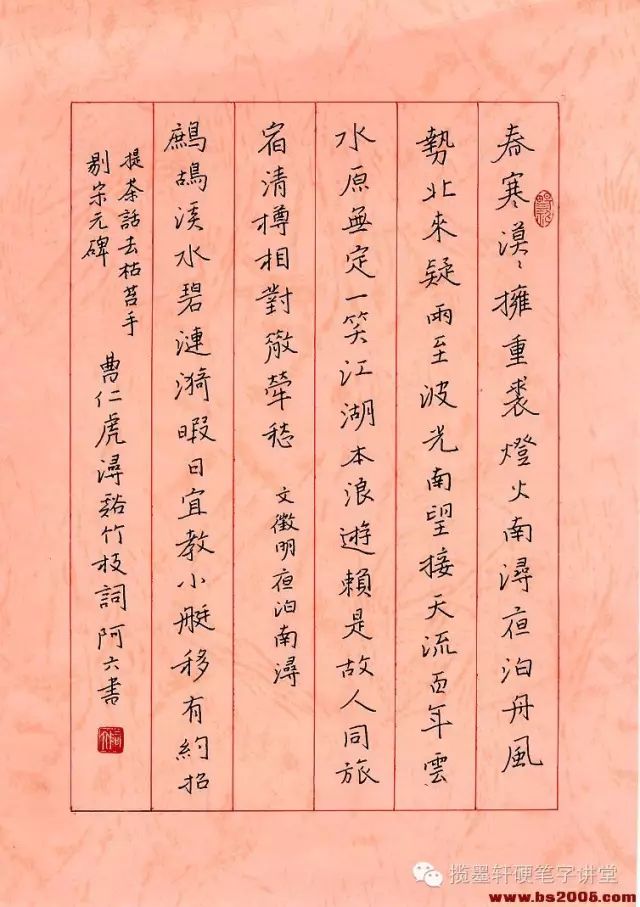 春寒漠〻擁重裘燈火南潯夜泊舟風
勢北來疑雨至波光南望接天流百年雲
水原無定一笑江湖本浪遊賴是故人同旅
宿清樽相對散牽愁 文徵明夜泊南潯
鷓鴣溪水碧漣漪暇日宜教小艇移有約招
提茶話去枯苔手
剔宋元碑
曹仁虎潯谿竹枝詞阿六書
揽墨轩硬笔字讲堂
www.bs2005.com